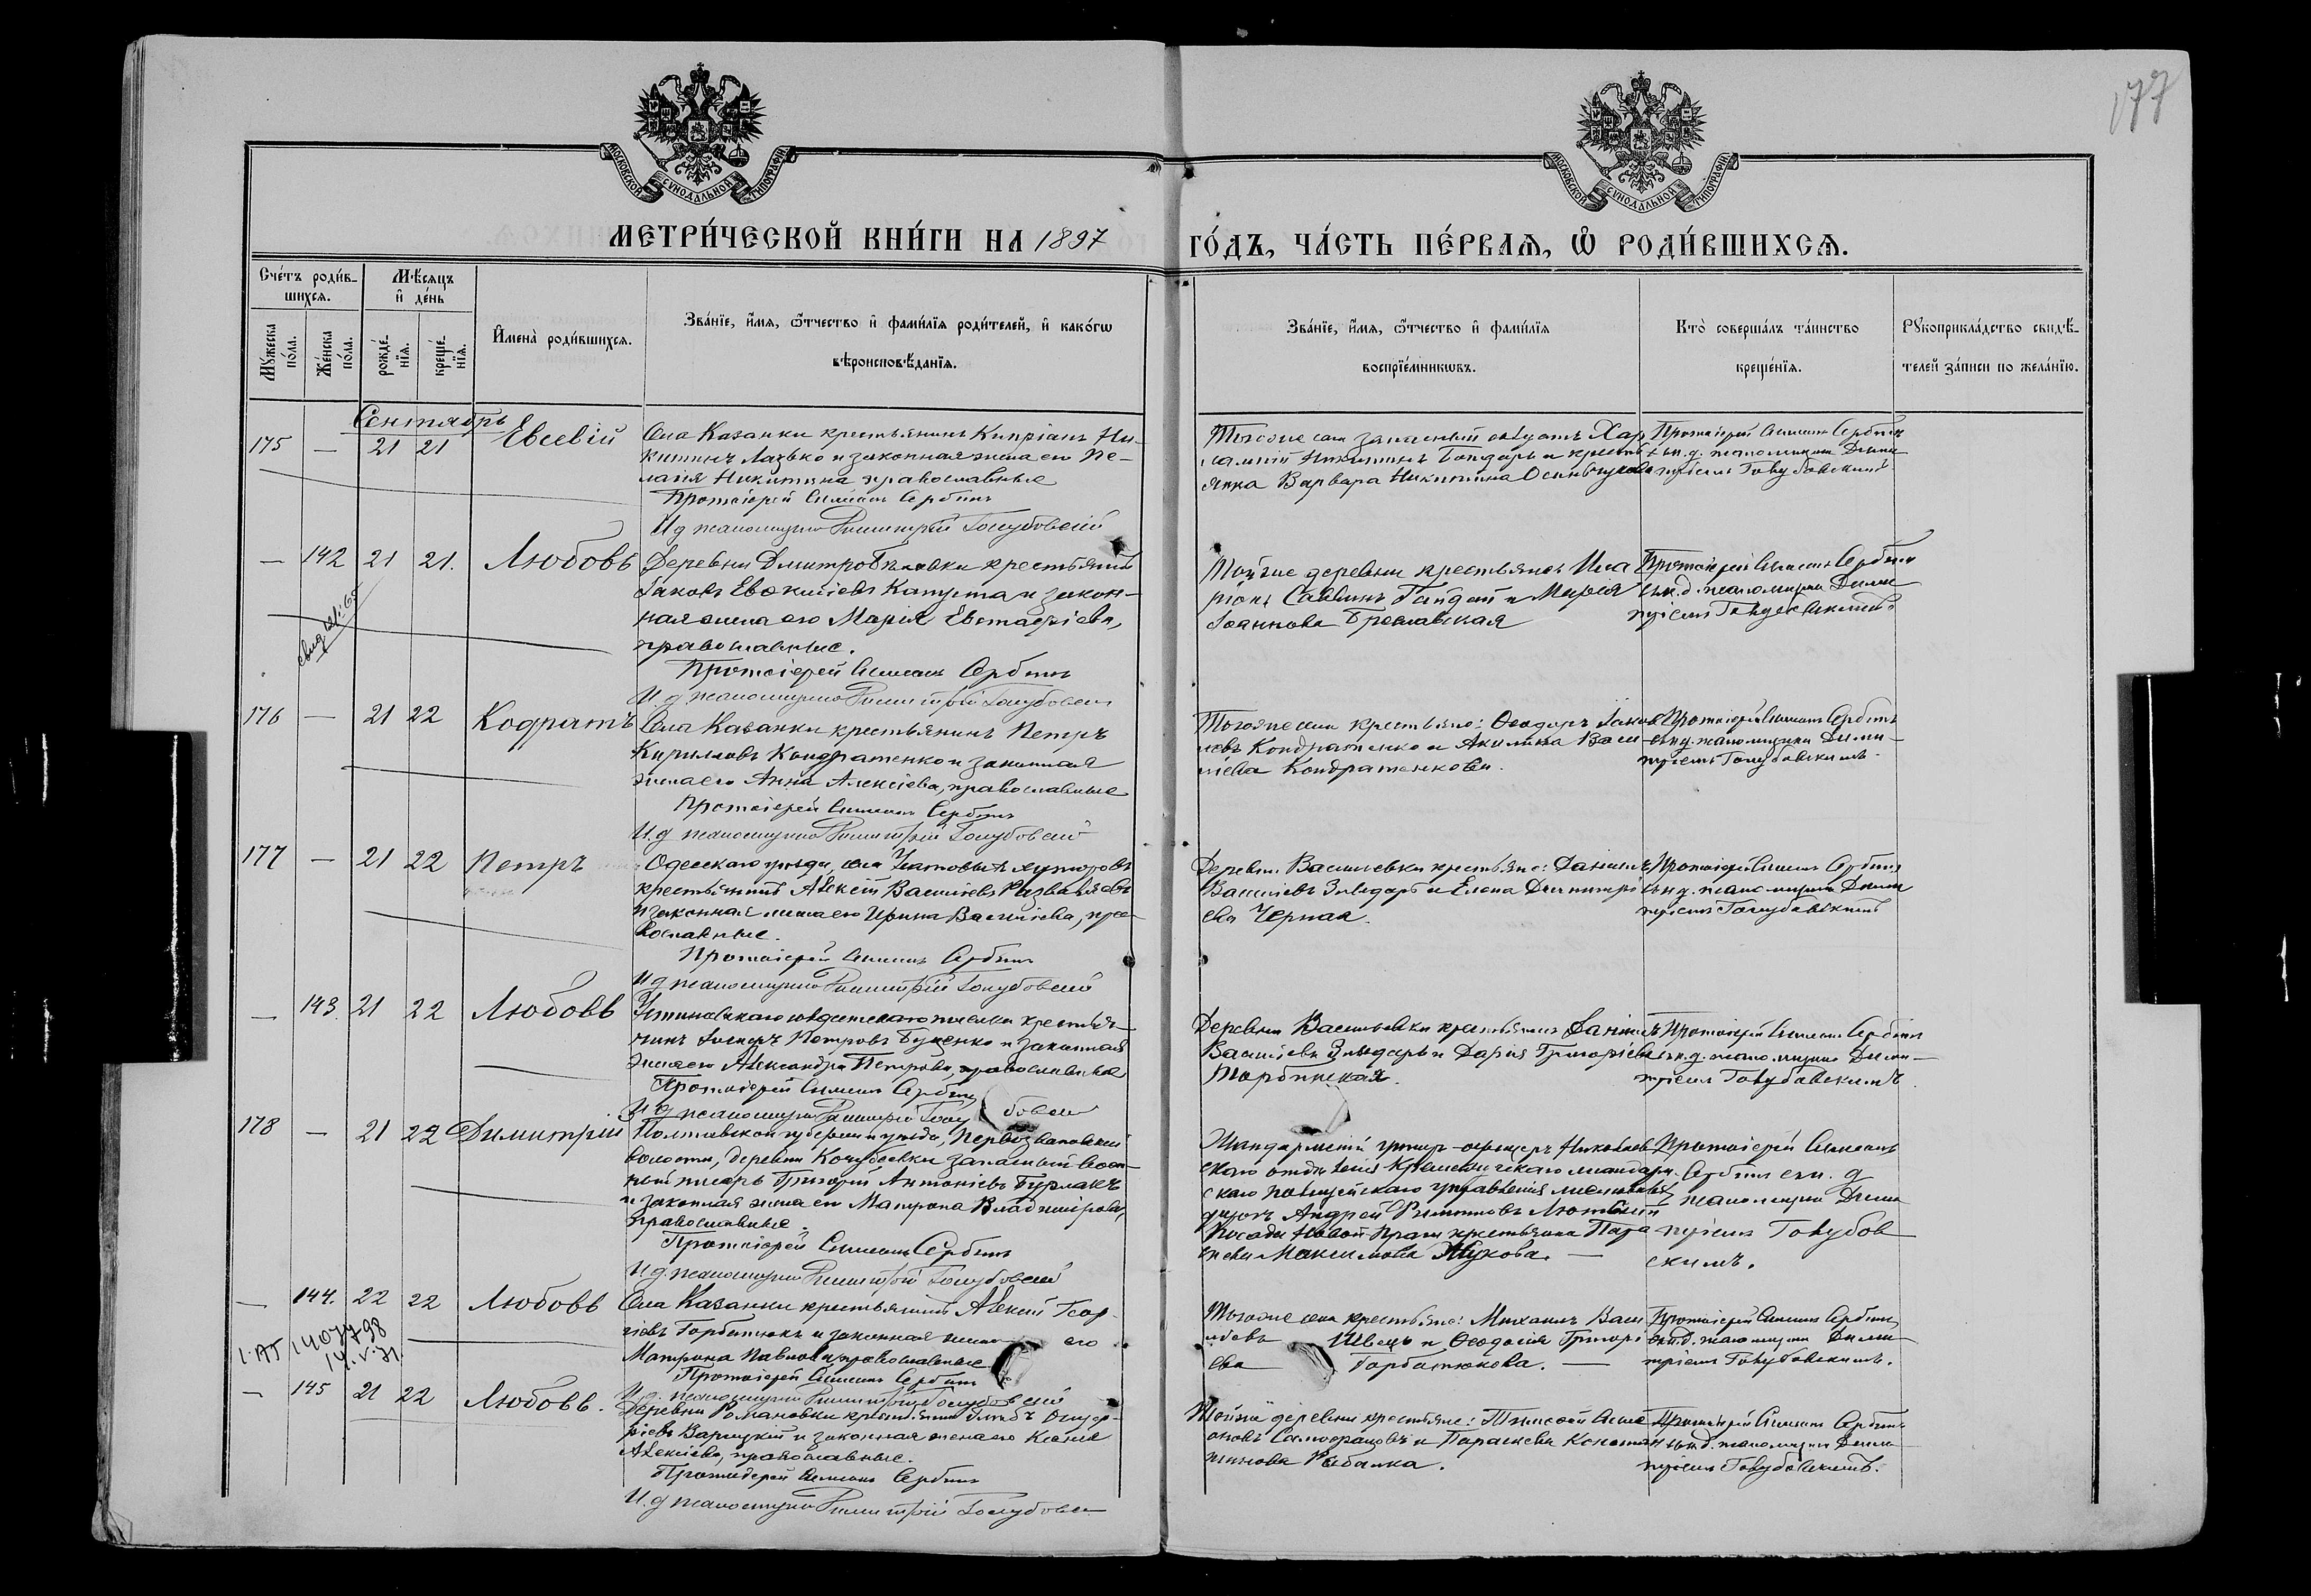 177
МОСКОВСКОЙ СУНОДАЛЬНОЙ ТИПОГРАФІИ
МОСКОВСКОЙ СУНОДАЛЬНОЙ ТИПОГРАФІИ
МЕТРИ́ЧЕСКОЙ КНИ́ГИ НА 1897
ГО́ДЪ, ЧА́СТЬ ПЕ́РВАЯ, Ѡ РОДИ́ВШИХСЯ.
Сче́тъ роди́в-
шихся.
Мѣ́сяцъ
и҆ де́нь
Му́жеска
по́ла.
Же́нска
по́ла.
рожде́-
нїя.
креще́-
нїя.
И҆мена̀ роди́вшихся.
Зва́нїе, и҆́мя, ѻ҆́тчество и҆ фами́лїя роди́телей, и҆ како́гѡ
вѣроисповѣ́данїя.
Зва́нїе, и҆́мя, ѻ҆́тчество и҆ фами́лїя
воспрїе́мникѡвъ.
Кто̀ соверша́лъ та́инство
креще́нїя.
Рꙋкоприкла́дство свидѣ́-
телей за́писи по жела́нїю.
Сентябрь
175 — 21 21 Евсевій
Села Казанки крестьянинъ Кипріанъ Ни-
китинъ Лазько и законная жена его Пе-
лагія Никитина православные
Протоіерей Симеонъ Сербинъ
И д псаломщика Димитрій Голубовскій
Тогоже села запасный солдатъ Хар
лампій Никитинъ Бондарь и кресть
янка Варвара Никитина
Протоіерей Симеонъ Сербинъ
съ и. д. псаломщика Дими
тріемъ Голубовскимъ
— 142 21 21. Любовь
Деревни крестьянинъ
Іаковъ Евфиміевъ Капуста и закон-
ная жена его Марія Евстафіева,
православные.
Протоіерей Симеонъ Сербинъ
И. д псаломщика Димитрій Голубовскій
Тойже деревни крестьяне: Ила
ріонъ Саввинъ Гайдай и Марія
Іоаннова Бреславская
Протоіерей Симеонъ Сербинъ
съ и. д. псаломщика Дими
тріемъ Голубовскимъ
176 — 21 22 Кодратъ
Села Казанки крестьянинъ Петръ
Кирилловъ Кондратенко и законная
жена его Анна Алексіева, православные
Протоіерей Симеонъ Сербинъ
И. д псаломщика Димитрій Голубовскій
Тогоже села крестьяне: Ѳеодоръ Іаков
левъ Кондратенко и Акилина Васи-
ліева Кондратенкова.
Протоіерей Симеонъ Сербинъ
съ и д. псаломщика Дими-
тріемъ Голубовскимъ.
177 — 21 22 Петръ
Одесскаго уѣзда, села хуторовъ
крестьянинъ Алексій Васильевъ
и законная жена его Ирина Васильева, пра-
вославные.
Протоіерей Симеонъ Сербинъ
И д псаломщика Димитрій Голубовскій
Деревни Васильевки крестьяне: Даніилъ
Васильевъ и Елена Димитрі
ева Черная.
Протоіерей Симеонъ Сербинъ
съ и д. псаломщика Дими
тріемъ Голубовскимъ
— 143. 21 22 Любовь
крестья-
нинъ Петровъ Буценко и законная
жена его Александра Петрова, православные
Протоіерей Симеонъ Сербинъ
И д псаломщика Димитрій Голубовскій
Деревни Васильевки крестьянинъ Даніилъ
Васильевъ и Дарія Григоріева
Протоіерей Симеонъ Сербинъ
съ и. д. псаломщика Дими-
тріемъ Голубовскимъ.
178 — 21 22 Димитрій
Полтавской губерніи и уѣзда, Первозвановской
волости, деревни Кочубеевки запасный воен-
ный писарь Григорій Антоніевъ Бурлакъ
и законная жена его Матрона Владимірова,
православные.
Протоіерей Симеонъ Сербинъ
И д. псаломщика Димитрій Голубовскій
Жандармскій унтеръ-офицеръ Николаев
скаго отдѣленія жандарм
скаго полицейскаго управленія
Андрей
Посада Новой Праги крестьянка Пара
скева Максимова Жукова. —
Протоіерей Симеонъ
Сербинъ съ и. д
псаломщика Дими
тріемъ Голубов
скимъ.
— 144. 22 22 Любовь
Села Казанки крестьянинъ Алексій Геор-
гіевъ Горбатюкъ и законная жена его
Матрона Павлова православные
Протоіерей Симеонъ Сербинъ
И. д. псаломщика Димитрій Голубовскій
Тогоже села крестьяне: Михаилъ Васи
льевъ Швецъ и Ѳеодосія Григорі
ева Горбатюкова. —
Протоіерей Симеонъ Сербинъ
съ и. д. псаломщика Дими
тріемъ Голубовскимъ.
14.V.31.
— 145 21 22 Любовь.
Деревни Романовки крестьянинъ Глѣбъ Онуф-
ріевъ Варицкій и законная жена его Ксенія
Алексіева, православные.
Протоіерей Симеонъ Сербинъ
И. д псаломщика Димитрій Голубовскій
Тойже деревни крестьяне: Тимоѳей Симе
оновъ и Параскева Констан
тинова Рыбалка.
Протоіерей Симеонъ Сербинъ
съ и. д. псаломщика Дими
тріемъ Голубовскимъ.